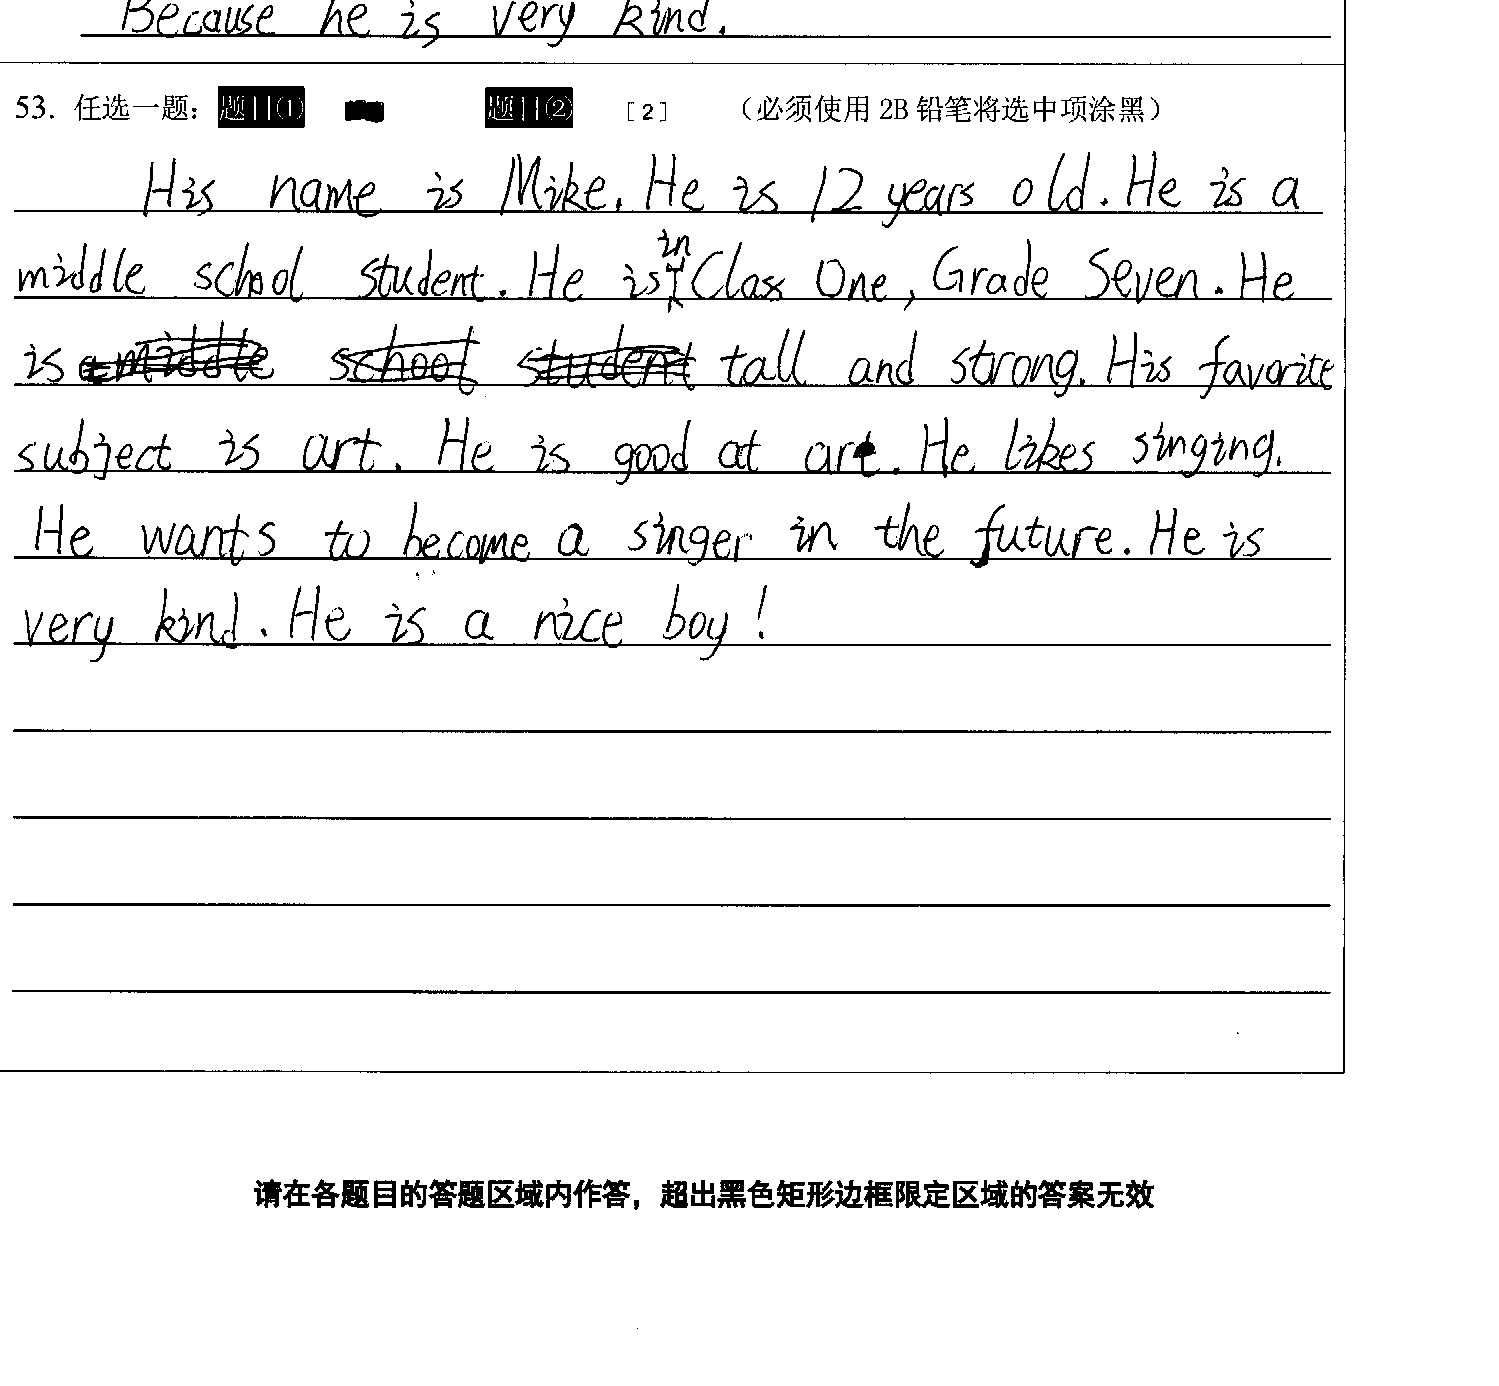 Because he is very kind.
53. 任选一题： 题目(1) 题目(2) [2] （必须使用 2B 铅笔将选中项涂黑）
His name is Mike. He is 12 years old. He is a
middle school student. He is in Class One, Grade Seven. He
is a middle school student tall and strong. His favorite
subject is art. He is good at art. He likes singing.
He wants to become a singer in the future. He is
very kind. He is a nice boy!
请在各题目的答题区域内作答，超出黑色矩形边框限定区域的答案无效